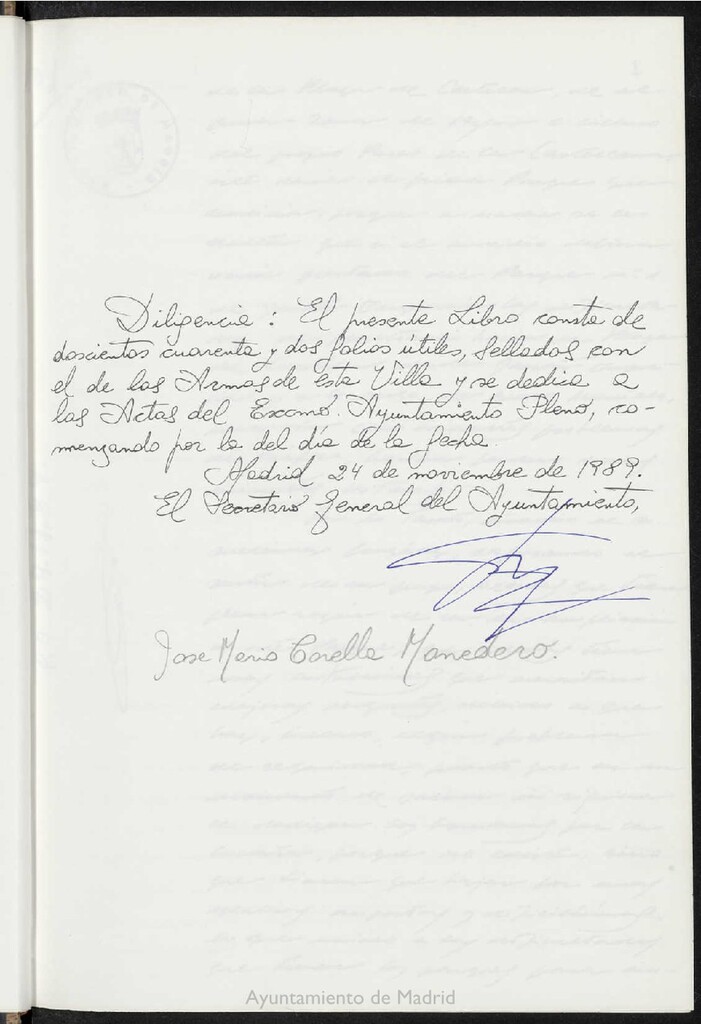 Diligencia: El presente Libro consta de
doscientos cuarenta y dos folios útiles, sellados con
el de las Armas de esta Villa y se dedica a
las Actas del Excmo. Ayuntamiento Pleno, co-
menzando por la del día de la fecha.
Madrid 24 de noviembre de 1989.
El Secretario General del Ayuntamiento,
Jose Mario Corella Monedero.
Ayuntamiento de Madrid